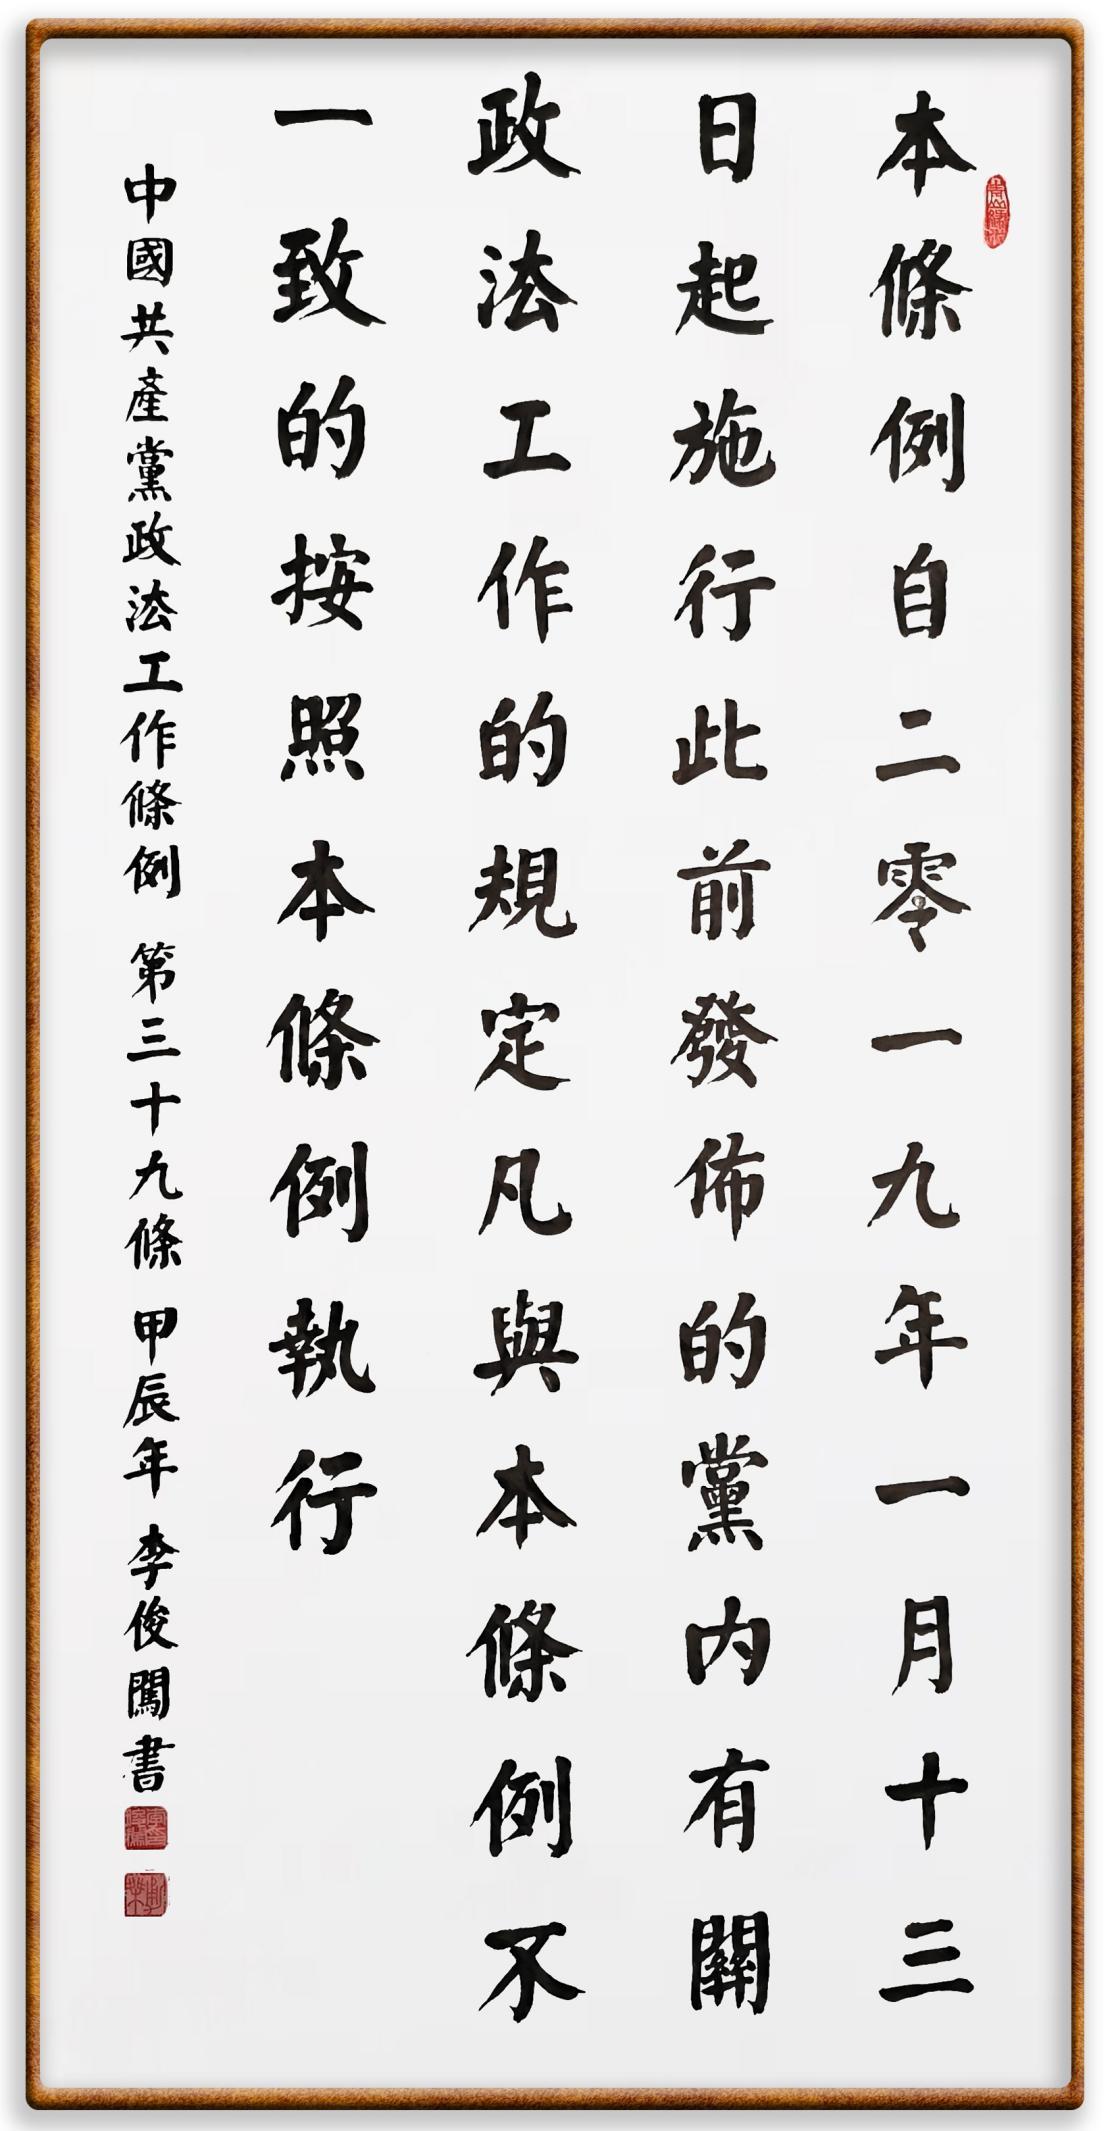 本條例自二零一九年一月十三
日起施行此前發佈的黨内有關
政法工作的規定凡與本條例不
一致的按照本條例執行
中國共產黨政法工作條例 第三十九條 甲辰年 李俊闖書